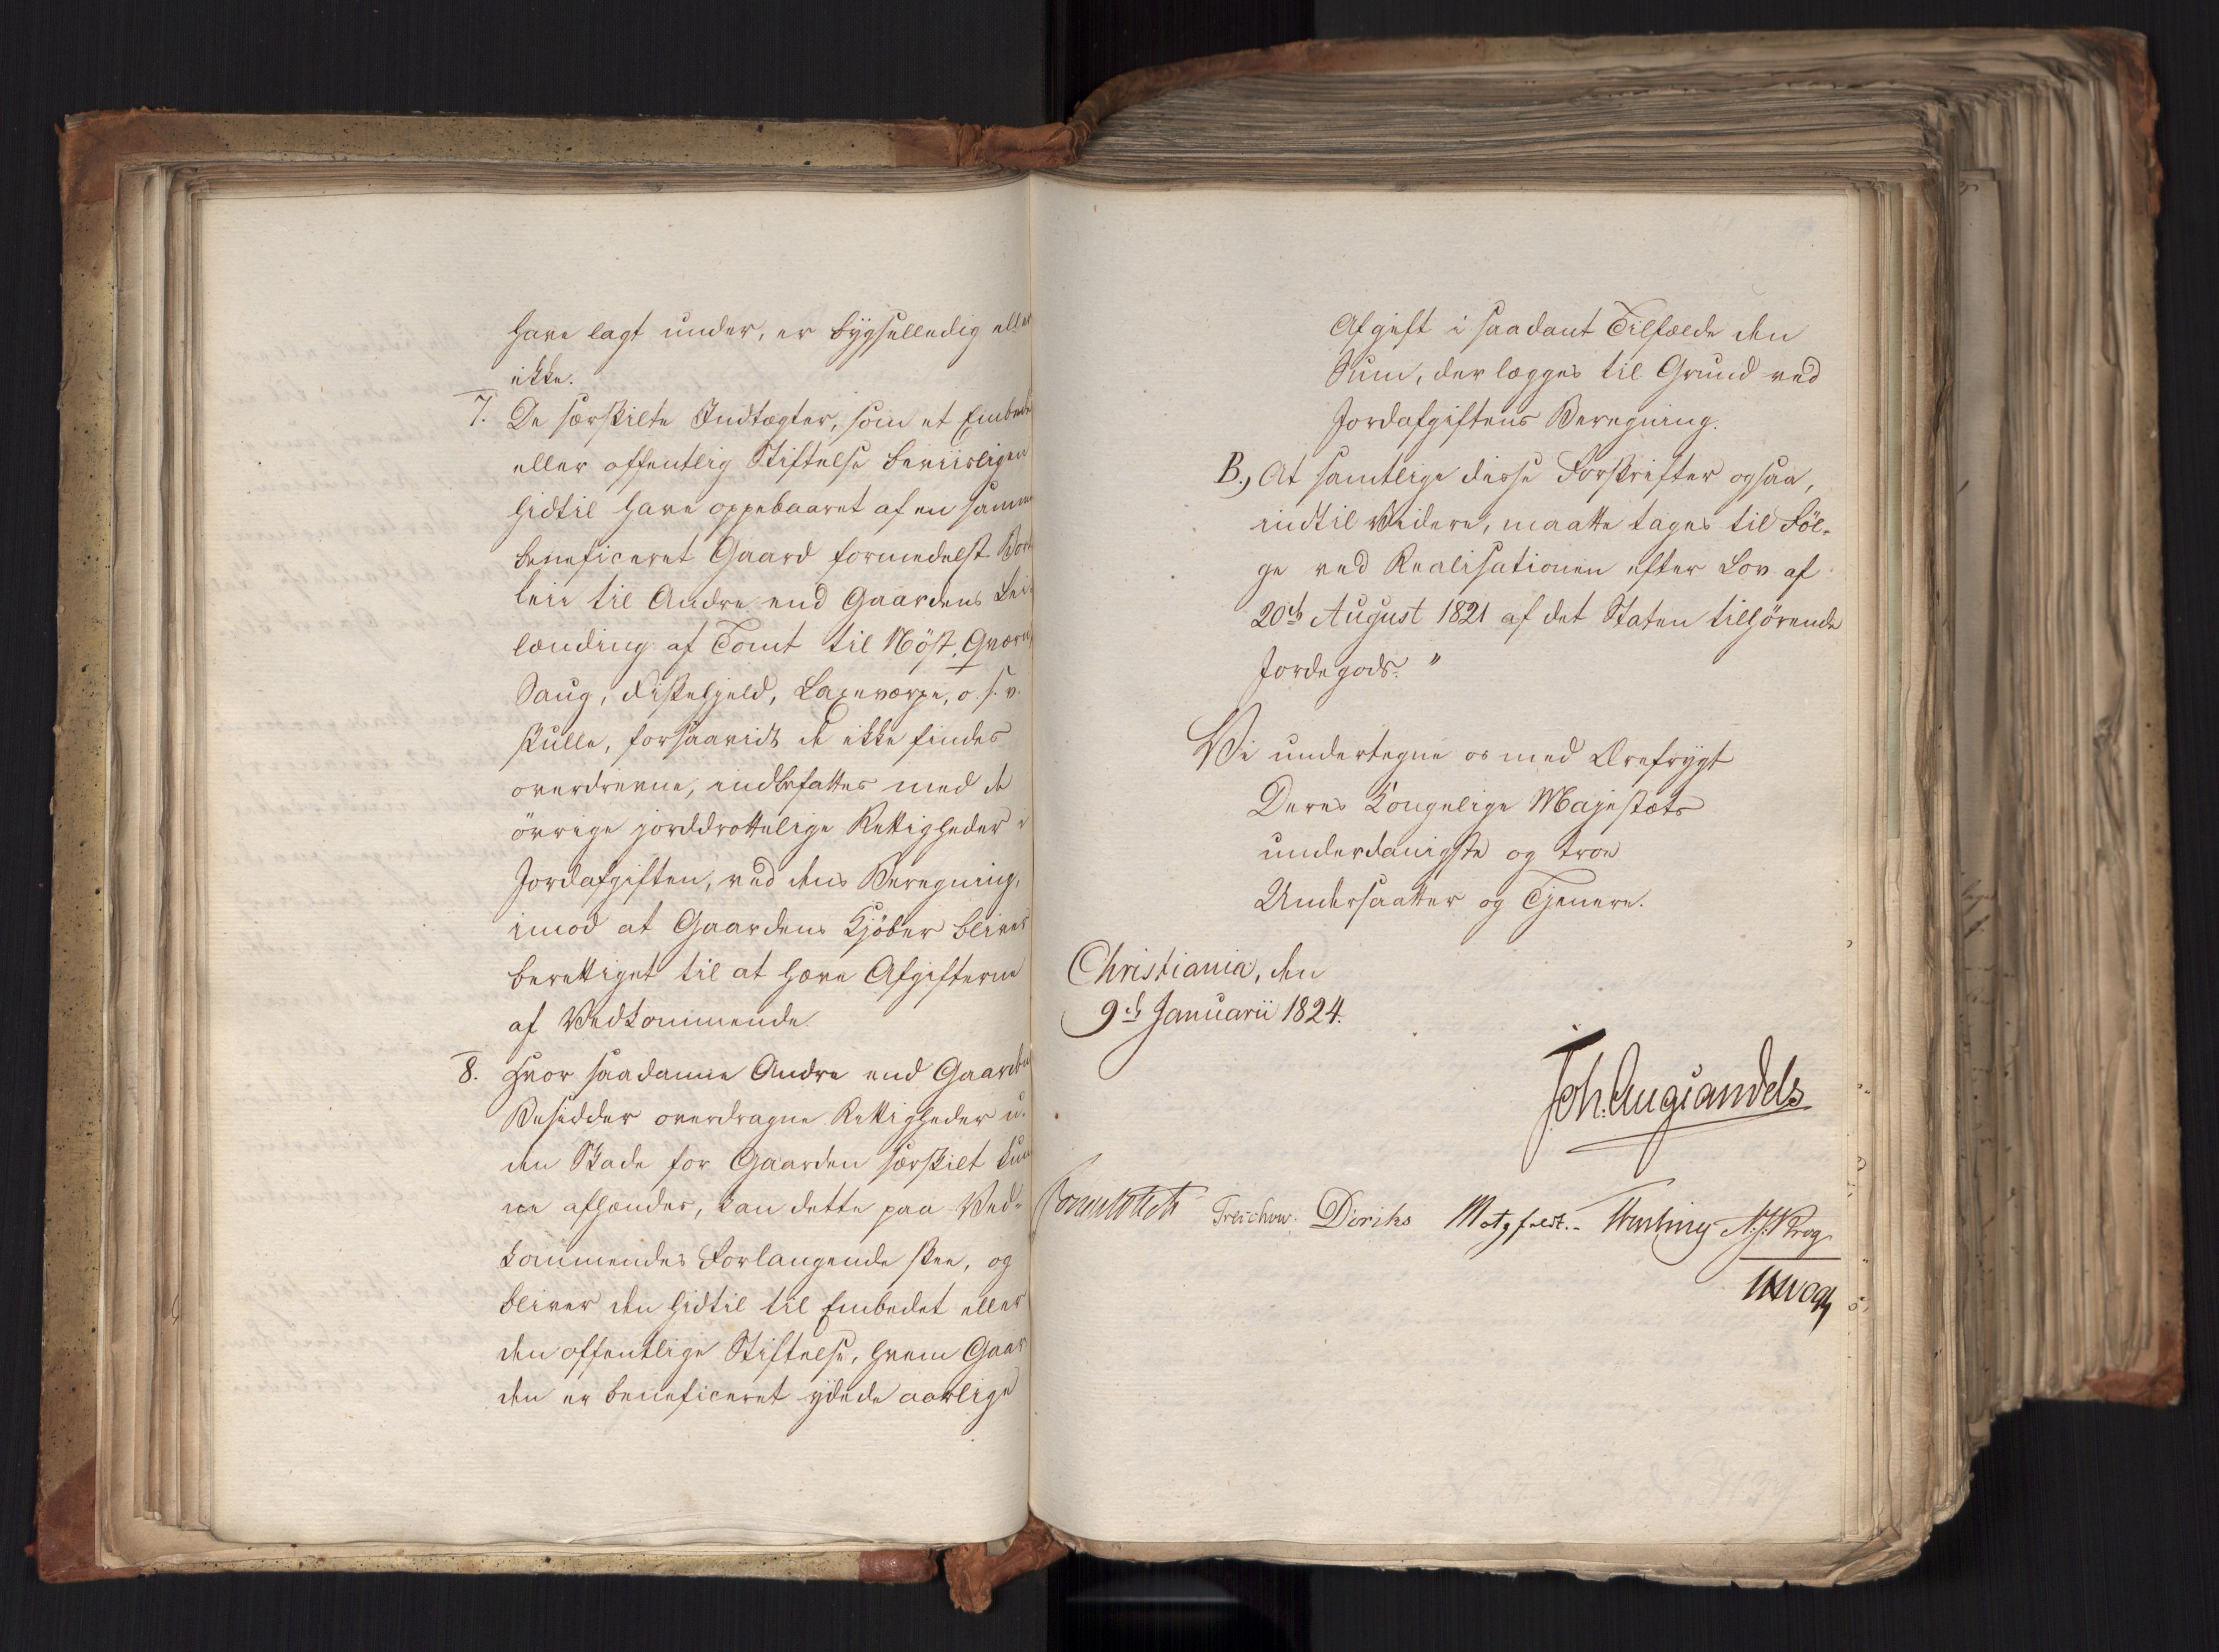 have lagt under, er bygselledig eller
ikke.
7. De særskilte Indtægter, som et Embede
eller offentlig Stiftelse beviisligen
hidtil have oppebaaret af en samme
beneficeret Gaard formedelst Bort
leie til Andre end Gaardens Lei-
lænding af Tomt til Nöst, Qværn,
Saug, Fiskehjeld, Laxeværpe, o. s. v.
skulle, forsaavidt de ikke findes
overdrevne, indbefattes med de
övrige jorddrottelige Rettigheder i
Jordafgiften, ved dens Beregning,
imod at Gaardens Kjöber bliver
berettiget til at hæve Afgifterne
af Vedkommende.
8. Hvor saadanne Andre end Gaardens
Besidder overdragne Rettigheder u-
den Skade for Gaarden særskilt kun
ne afhændes, kan dette paa Ved-
kommendes Forlangende skee, og
bliver den hidtil til Embedet eller
den offentlige Stiftelse, hvem Gaar
den er beneficeret ydede aarlige
Afgift i saadant Tilfælde den
Sum, der lægges til Grund ved
Jordafgiftens Beregning.
B., At samtlige disse Forskrifter ogsaa,
indtil Videre, maatte tages til Föl-
ge ved Realisationen efter Lov af
20de August 1821 af det Staten tilhörende
Jordegods."
Vi undertegne os med Ærefrygt
Deres Kongelige Majestæts
underdanigste og troe
Undersaatter og Tjenere.
Christiania, den
9de Januarii 1824.
Joh. Aug Sandels
Sommerfeldt Treschow. Diriks Motzfeldt. Krog